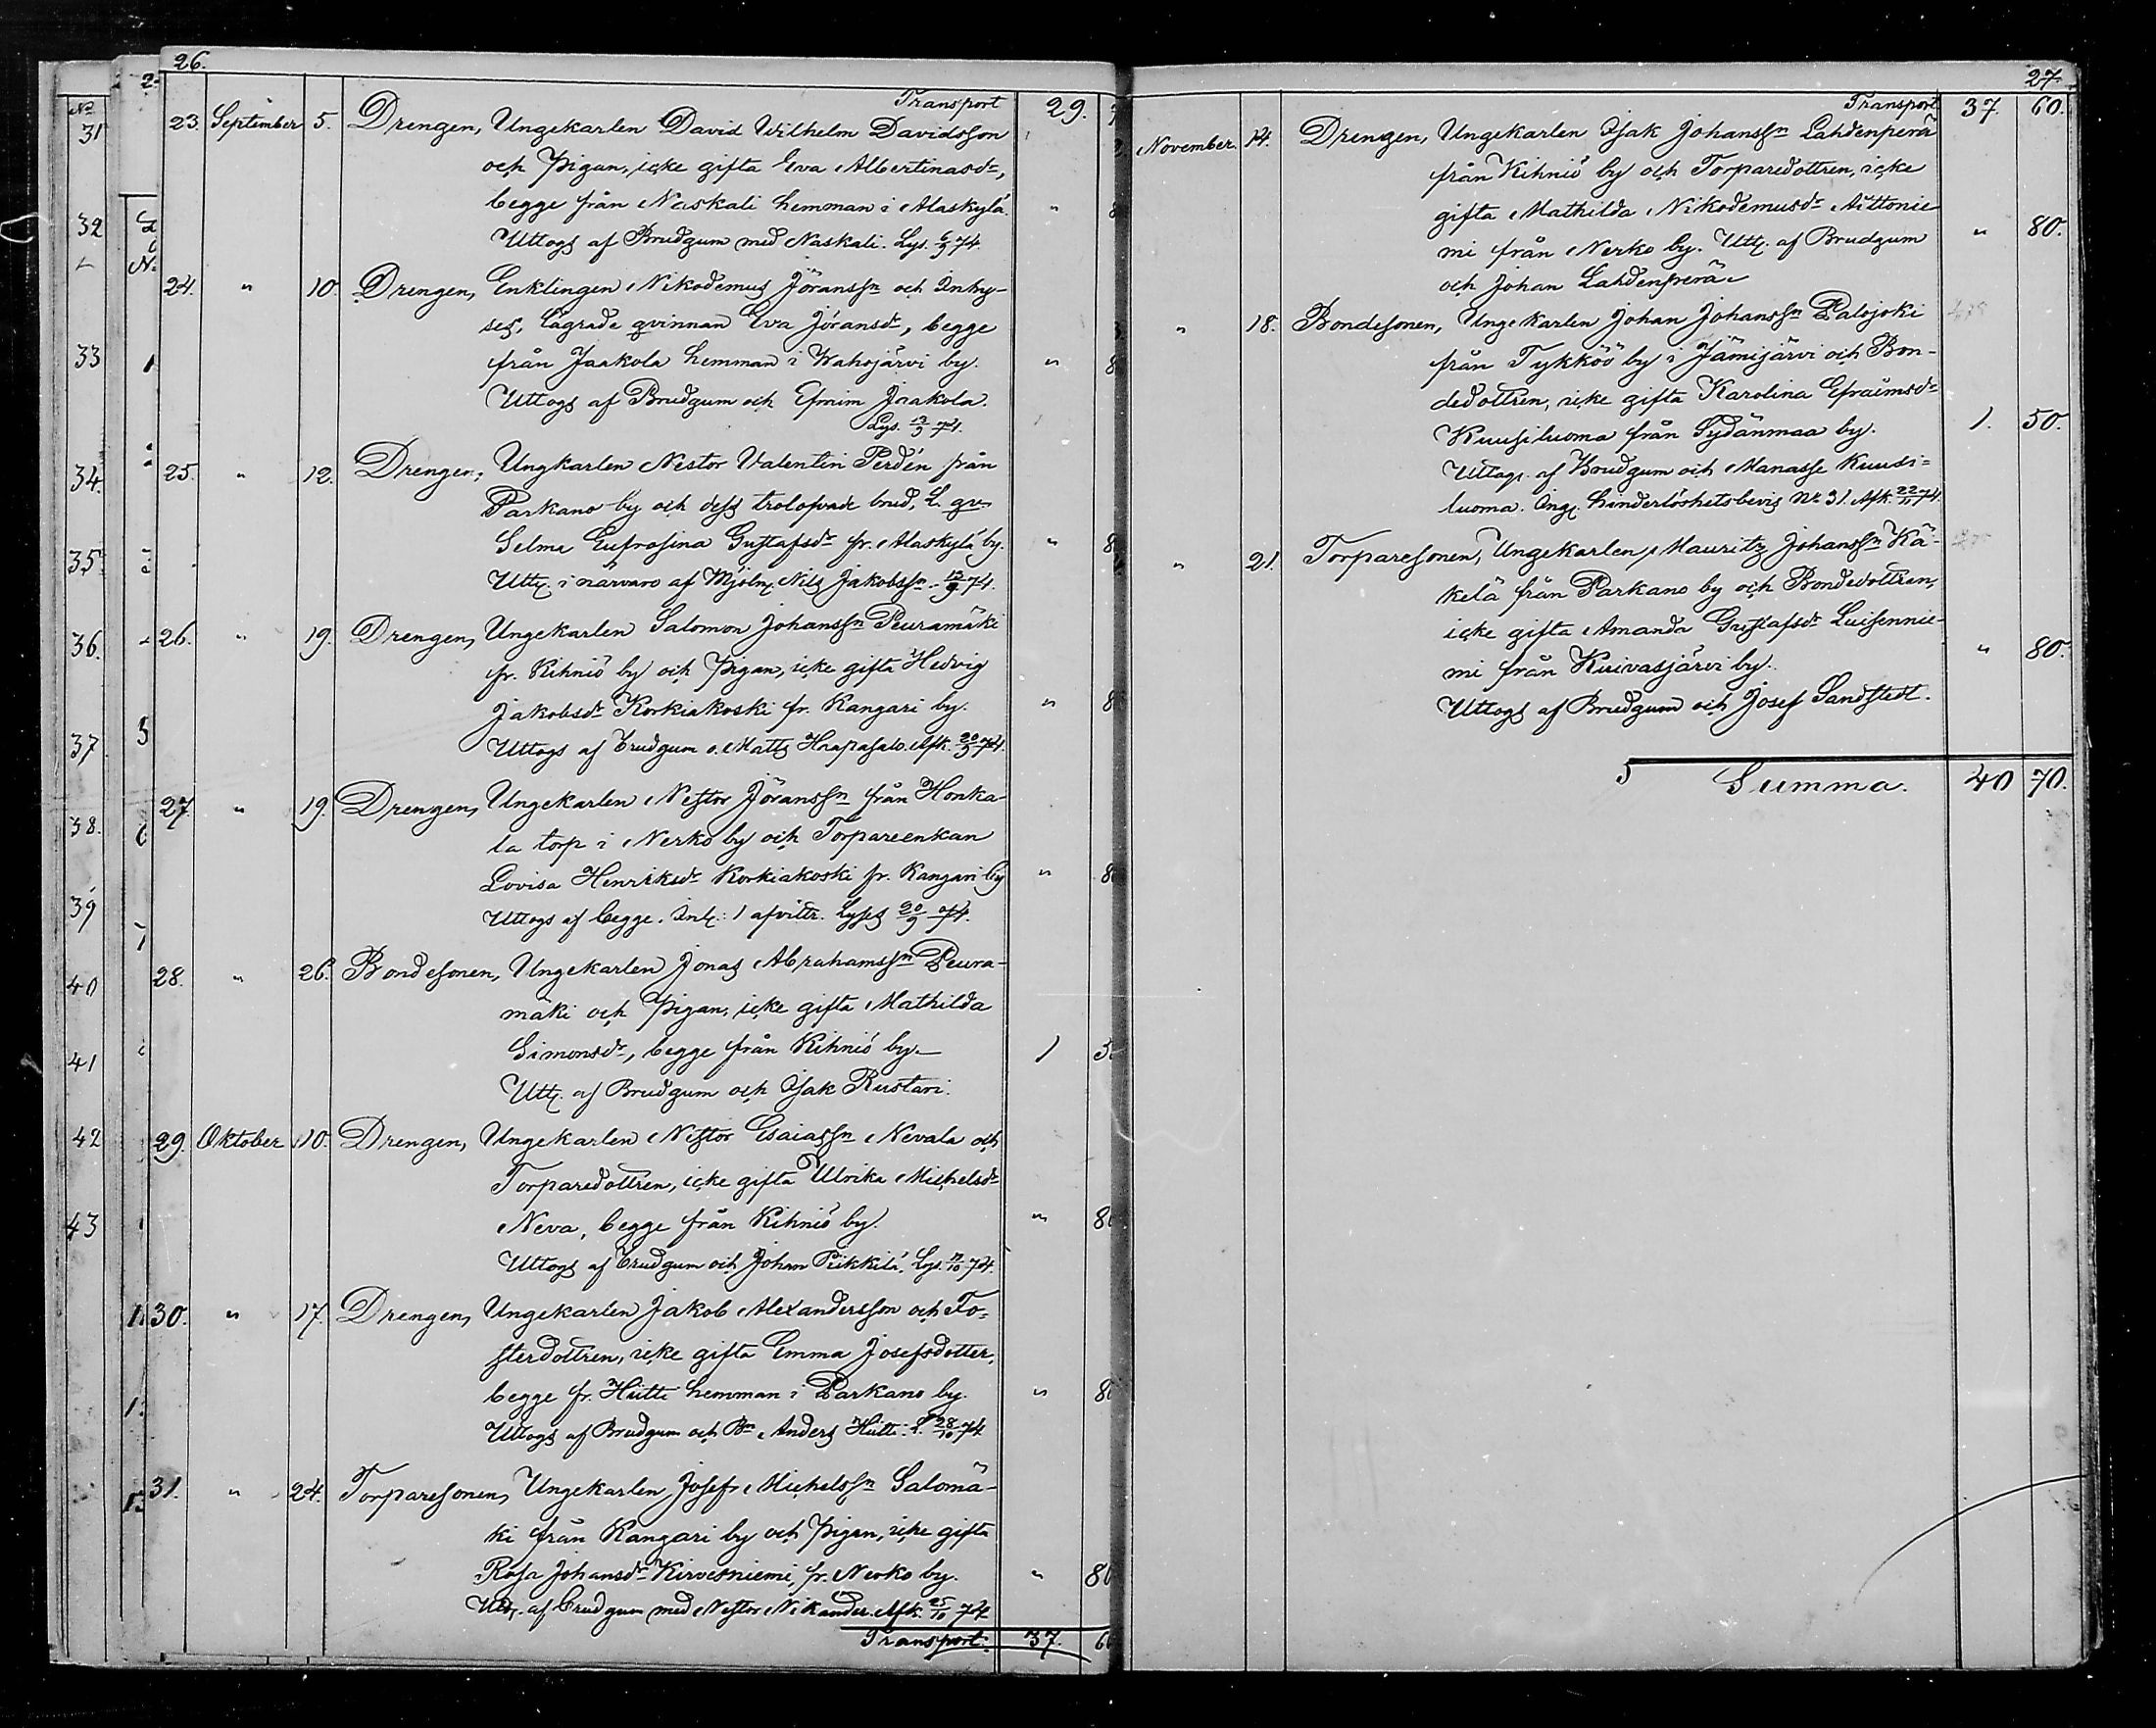 26.
Transport 29.
23. September 5. Drengen, Ungekarlen David Wilhelm Davidsson
och Pigan, icke gifta Eva Albertinasdr,
begge från Naskali hemman i Alaskylä. "
Uttogs af Brudgum med Naskali. Lys. 6/9 74.
24. " 10. Drengen, Enklingen Nikodemus Jöranssn och
Lägrade qvinnan Eva Jöransdr, begge
från Jaakola hemman i Wahojärvi by. "
Uttogs af Brudgum och Efraim Jaakola.
Lys. 13/9 74.
25. " 12. Drengen, Ungkarlen Nestor Valentin Perdén från
Parkano by och dess trolofvade brud, L. qv.
Selma Eufrosina Gustafsdr fr. Alaskylä by. "
Uttg. i närvaro af Mjöln. Nils Jakobssn. 13/9 74.
26. " 19. Drengen, Ungekarlen Salomon Johanssn Peuramäki
fr. Kihniö by och Pigan, icke gifta Hedvig
Jakobsdr Korkiakoski fr. Kangari by. "
Uttogs af brudgum o. Matts Haapasalo. Afk. 20/9 74.
27. " 19. Drengen, Ungekarlen Nestor Jöranssn från Honka-
la torp i Nerko by och Torpareenkan
Lovisa Henriksdr Korkiakoski fr. Kangari by "
Uttogs af begge. Inl.: 1 afvittr. Lyses 20/9 74.
28. " 26. Bondesonen, Ungekarlen Jonas Abrahamssn Peura-
mäki och Pigan, icke gifta Mathilda
Simonsdr, begge från Kihniö by. 1
Uttg. af Brudgum och Isak Rustari.
29. Oktober 10. Drengen, Ungekarlen Nestor Esaiassn Nevala och
Torparedottren, icke gifta Ulrika Michelsdr
Neva, begge från Kihniö by. "
Uttogs af brudgum och Johan Piikkilä. Lys. 11/10 74.
30. " 17. Drengen, Ungekarlen Jakob Alexandersson och Fo-
sterdottren, icke gifta Emma Josefsdotter,
begge fr. Hütti hemman i Parkano by. "
Uttogs af Brudgum och Bn Anders Hütti. L. 28/10 74
31. " 24. Torparesonen, Ungekarlen Josef Michelssn Salomä-
ki från Kangari by och Pigan, icke gifta
Rosa Johansdr Kirvesniemi, fr. Nerko by. " 80
Uttg. af brudgum med Nestor Nikander. Afk. 25/10 74.
Transport: 37.
27.
Transport 37. 60.
November. 14. Drengen, Ungekarlen Isak Johanssn Lahdenperä
från Kihniö by och Torparedottren, icke
gifta Mathilda Nikodemusdr Aittonie-
mi från Nerko by. Uttg. af Brudgum " 80.
och Johan Lahdenperä.
" 18. Bondesonen, Ungekarlen Johan Johanssn Palojoki
från Tykköö by i Jämijärvi och Bon-
dedottren, icke gifta Karolina Efraimsdr
Kuusiluoma från Sydänmaa by. 1. 50.
Uttogs. af Brudgum och Manasse Kuusi-
luoma. Ing. hinderlöshetsbevis No 31. Afk. 22/11 74.
" 21. Torparesonen, Ungekarlen Mauritz Johanssn Kä-
kelä från Parkano by och Bondedottren,
icke gifta Amanda Gustafsdr Luisennie-
mi från Kuivasjärvi by. " 80.
Uttogs af Brudgum och Josef Sandstedt.
5 Summa. 40 70.
No
31
32
33
34.
35.
36.
37.
38.
39
40
41
42
43